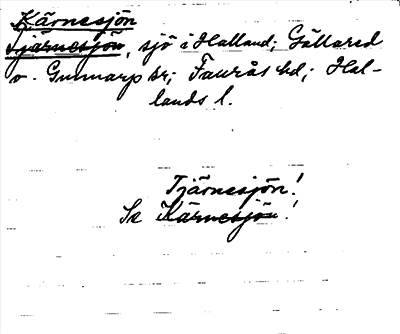 Kärnesjön
Tjärnesjön, sjö i Halland; Gällared
o. Gunnarp sr; Faurås hd; Hal-
lands l.
Tjärnesjön!
Se Kärnesjön!